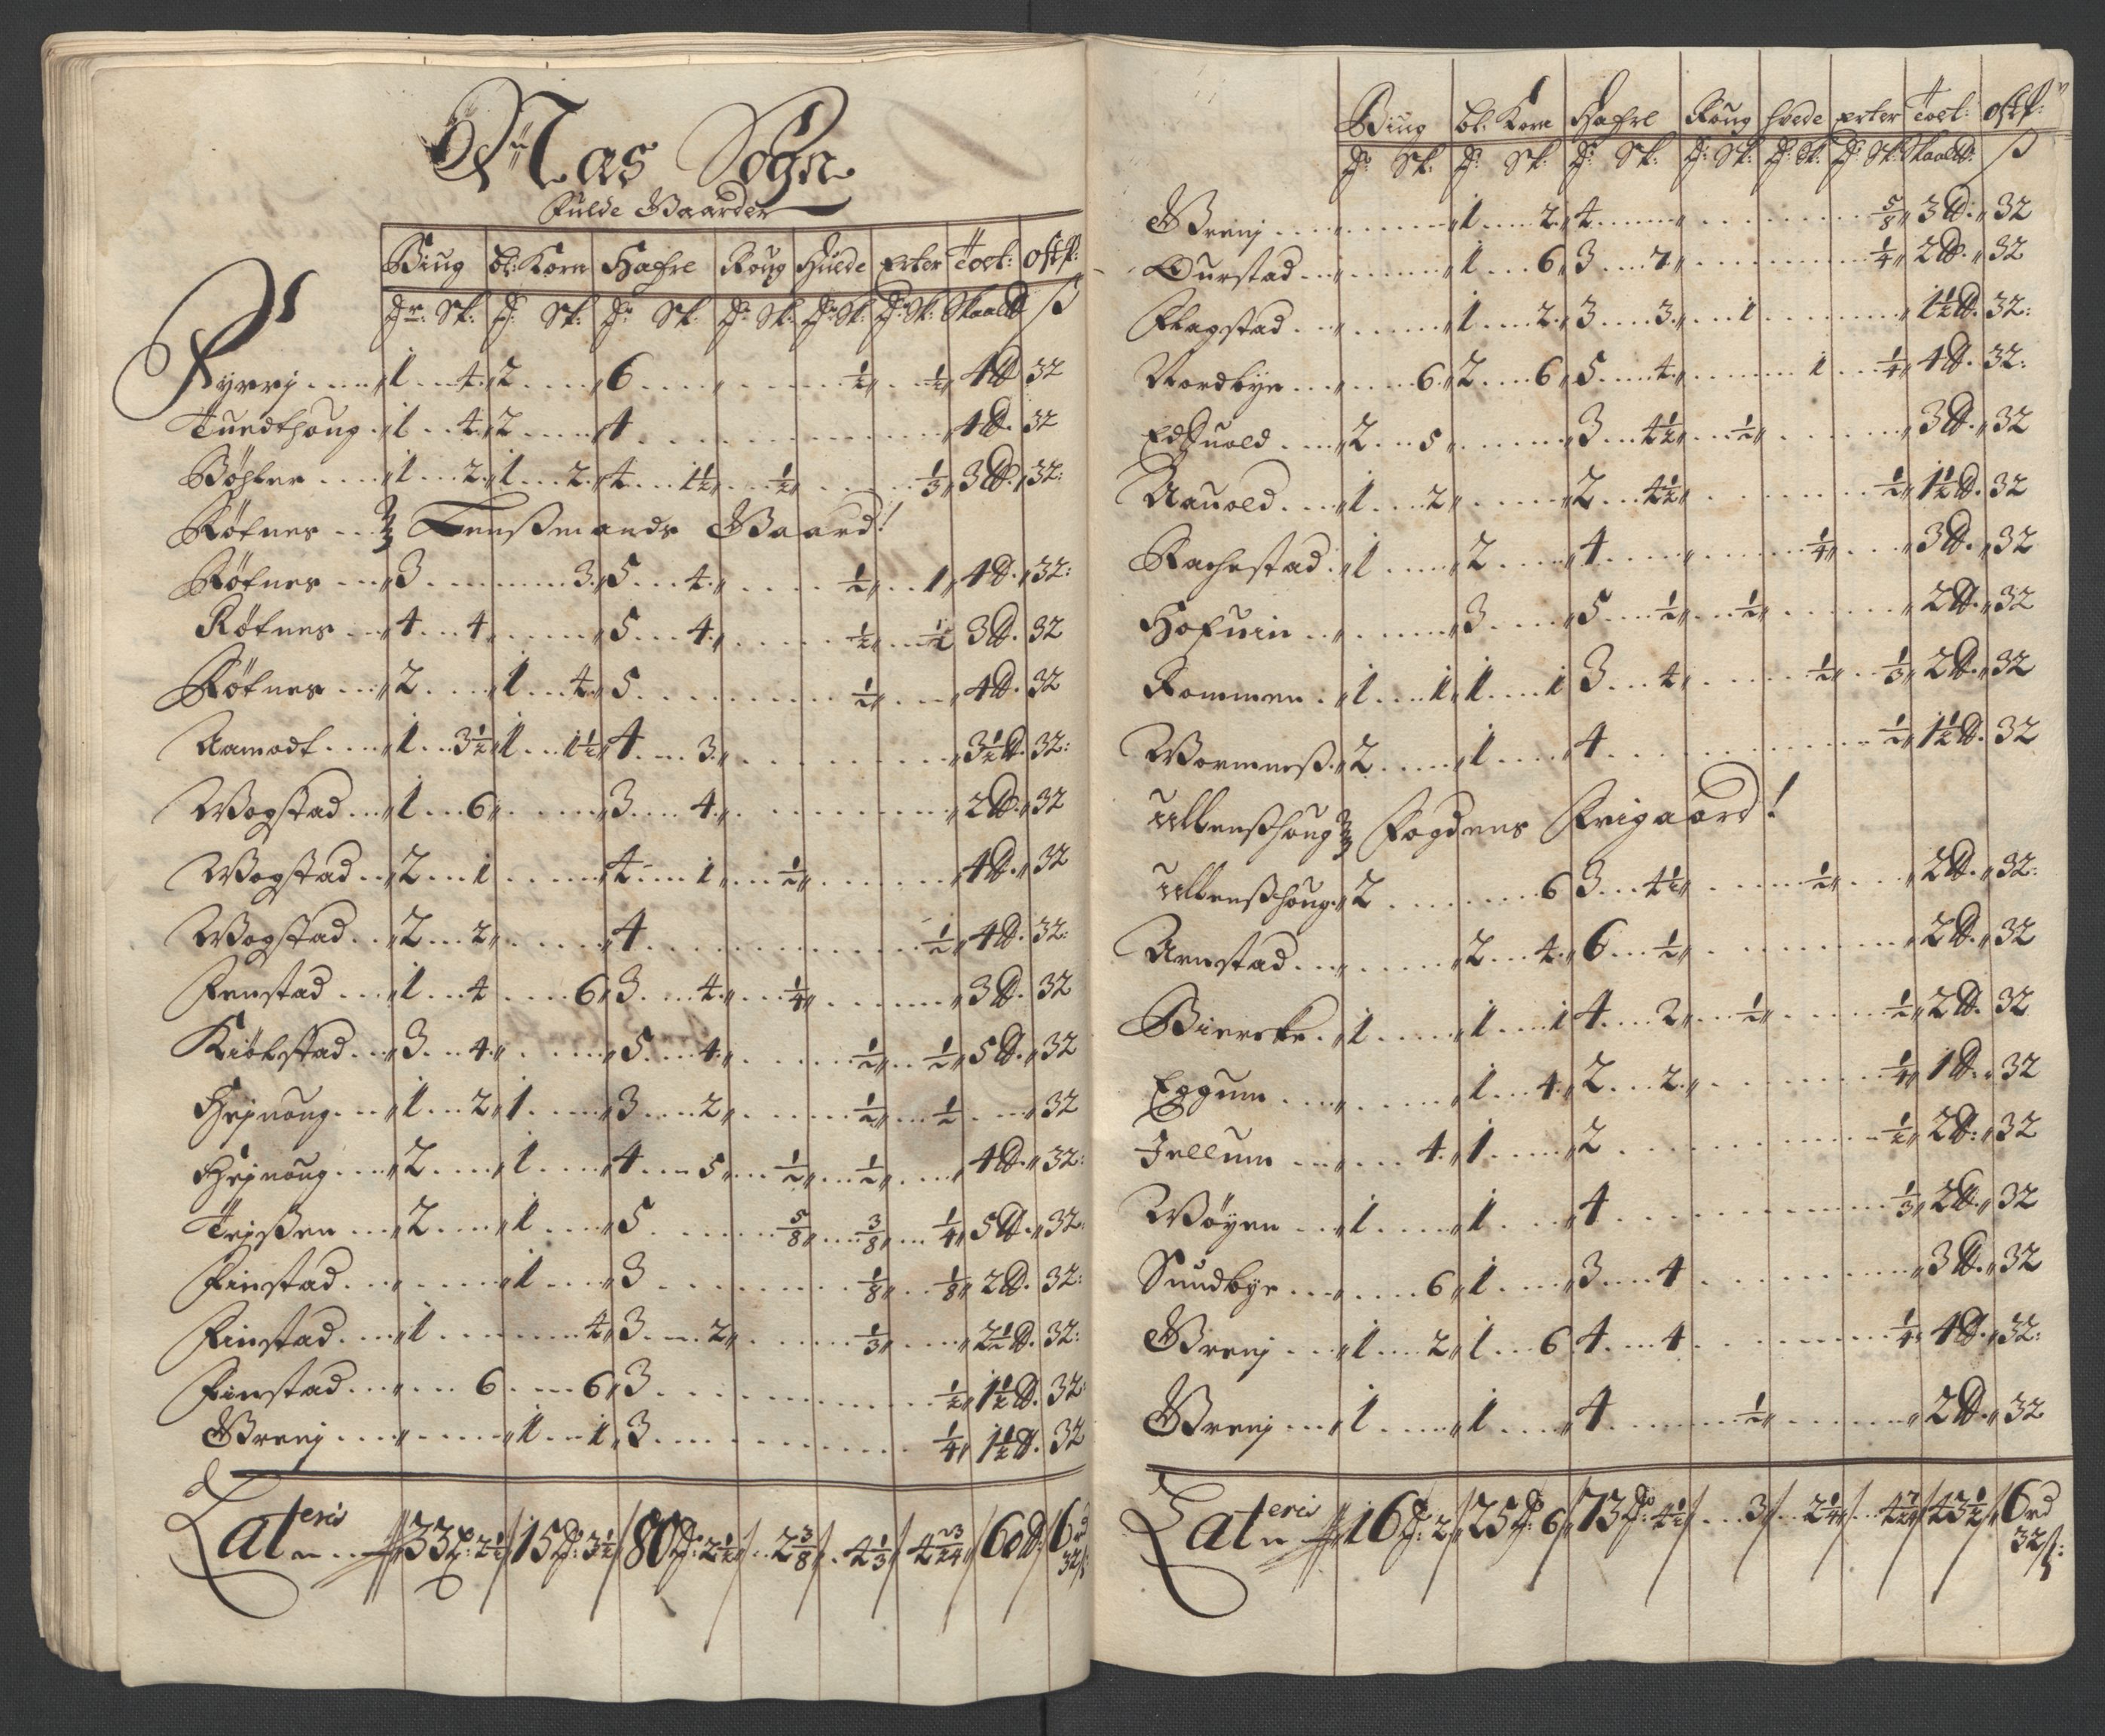 Næs Sogn
Fulde Gaarder
Biug bl: Korn Hafre Roug Huede Erter Toet: ostp:
Td: Sk: Td: Sk: Td: Sk: Td: Sk: Td: Sk: Td: Sk: Skaal℔ ß
.... 1 .. 4 2 .... 6 .... ½ .. ½ 4℔ 32
Tuedthoug . 1 .. 4 2 .... 4 .... 4℔. 32
Böhler .... 1 .. 2 1 .. 2 4 .. 1½ .. ½ .... ⅓ 3℔. 32:
Röfnes ... Lensßmands Gaard!
Röfnes ... 3 ...... 3 5 .. 4 .... ½ .. 1 4℔. 32:
Röfnes ... 4 .. 4 .... 5 .. 4 .... ½ .. ½ 3℔. 32
Röfnes ... 2 .... 1 .. 4 5 .... ½ .... 4℔. 32
Aamodt .... 1 .. 3½ 1 .. 1½ 4 .. 3 .... 3½℔. 32:
Wogstad ... 1 .. 6 .... 3 .. 4 .... 2℔. 32
Wogstad .. 2 .. 1 .... 4 .. 1 .. ½ .... 4℔. 32
Wogstad .. 2 .. 2 .... 4 .... ½ 4℔. 32:
Fenstad ... 1 .. 4 .... 6 3 .. 4 .. ¼ .... 3℔. 32
Kiölstad ... 3 .. 4 .... 5 .. 4 .... ½ .. ½ 5℔. 32
Hejnoug ... 1 .. 2 1 .... 3 .. 2 .... ½ .. ½ .... 32
Hejnoug .... 2 .... 1 .... 4 .. 5 .. ½ .. ½ .... 4℔. 32:
Tejßen ... 2 .... 1 .... 5 .... ⅝ .. ⅜ .. ¼ 5℔. 32:
Finstad ........ 1 .... 3 .... ⅛ .. ⅛ 2℔. 32:
Finstad .... 1 ...... 4 3 .. 2 .... ⅓ .... 2½℔. 32:
Finstad ...... 6 .... 6 3 .... ½ 1½℔. 32:
Grenj ........ 1 .. 1 3 .... ¼ 1½℔. 32
Lateris .. 33Td: 2½ 15Td: 3½ 80Td: 2½ .. 2⅜ .. 4⅓ .. 4 23/24 60℔: 6rd
32ß:
Biug bl: Korn Hafre Roug Hvede erter Toet: ostp:
Td: Sk: Td: Sk: Td: Sk: Td: Sk: Td: Sk: Td: Sk: Skaal℔: ß
Grenj ........ 1 .. 2 4 .... ⅝ 3℔: 32
Ourstad ........ 1 .. 6 3 .. 7 .... ¼ 2℔. 32
Flagstad ........ 1 .. 2 3 .. 3 .. 1 .... 1½℔. 32:
Nordbye ...... 6 2 .. 6 5 .. 4 .... 1 .. ¼ 4℔. 32:
Edsuold .... 2 .. 5 .... 3 .. 4½ .. ½ .... 3℔. 32
Aauold .... 1 .. 2 .... 2 .. 4½ .... ½ 1½℔. 32
Rachestad . 1 .... 2 .... 4 .... ¼ .... 3℔. 32
Hofuin ........ 3 .... 5 .. ½ .. ½ .... 2℔. 32
Rommen . 1 .. 1 1 .. 1 3 .. 4 .... ½ .. ⅓ 2℔. 32
Wormneß. 2 .... 1 .... 4 .... ½ 1½℔. 32
Ulbenßhoug Fogdens Frigaard!
Ulbenßhoug. 2 ...... 6 3 .. 4½ .... ½ .... 2℔. 32:
Arnstad ........ 2 .. 4 6 .. ½ .... 2℔. 32
Bierche . 1 .... 1 .. 1 4 .. 2 .. ½ .... ½ 2℔. 32
Eggum ........ 1 .. 4 2 .. 2 .... ¼ 1℔. 32
Jellum ...... 4 1 .... 2 .... ½ 2℔: 32
Wöyen ... 1 .... 1 .... 4 .... ⅓ 2℔. 32
Sundbye ...... 6 1 .... 3 .. 4 .... 3℔. 32
Grenj ... 1 .. 2 1 .. 6 4 .. 4 .... ¼ 4℔. 32:
Grenj ... 1 .... 1 .... 4 .... ½ .... 2℔. 32
Lateris 16Td: 2 25Td: 6 73Td: 4½ .. 3 .. 2¼ .. 4 7/24 43½ 6rd
32ß: